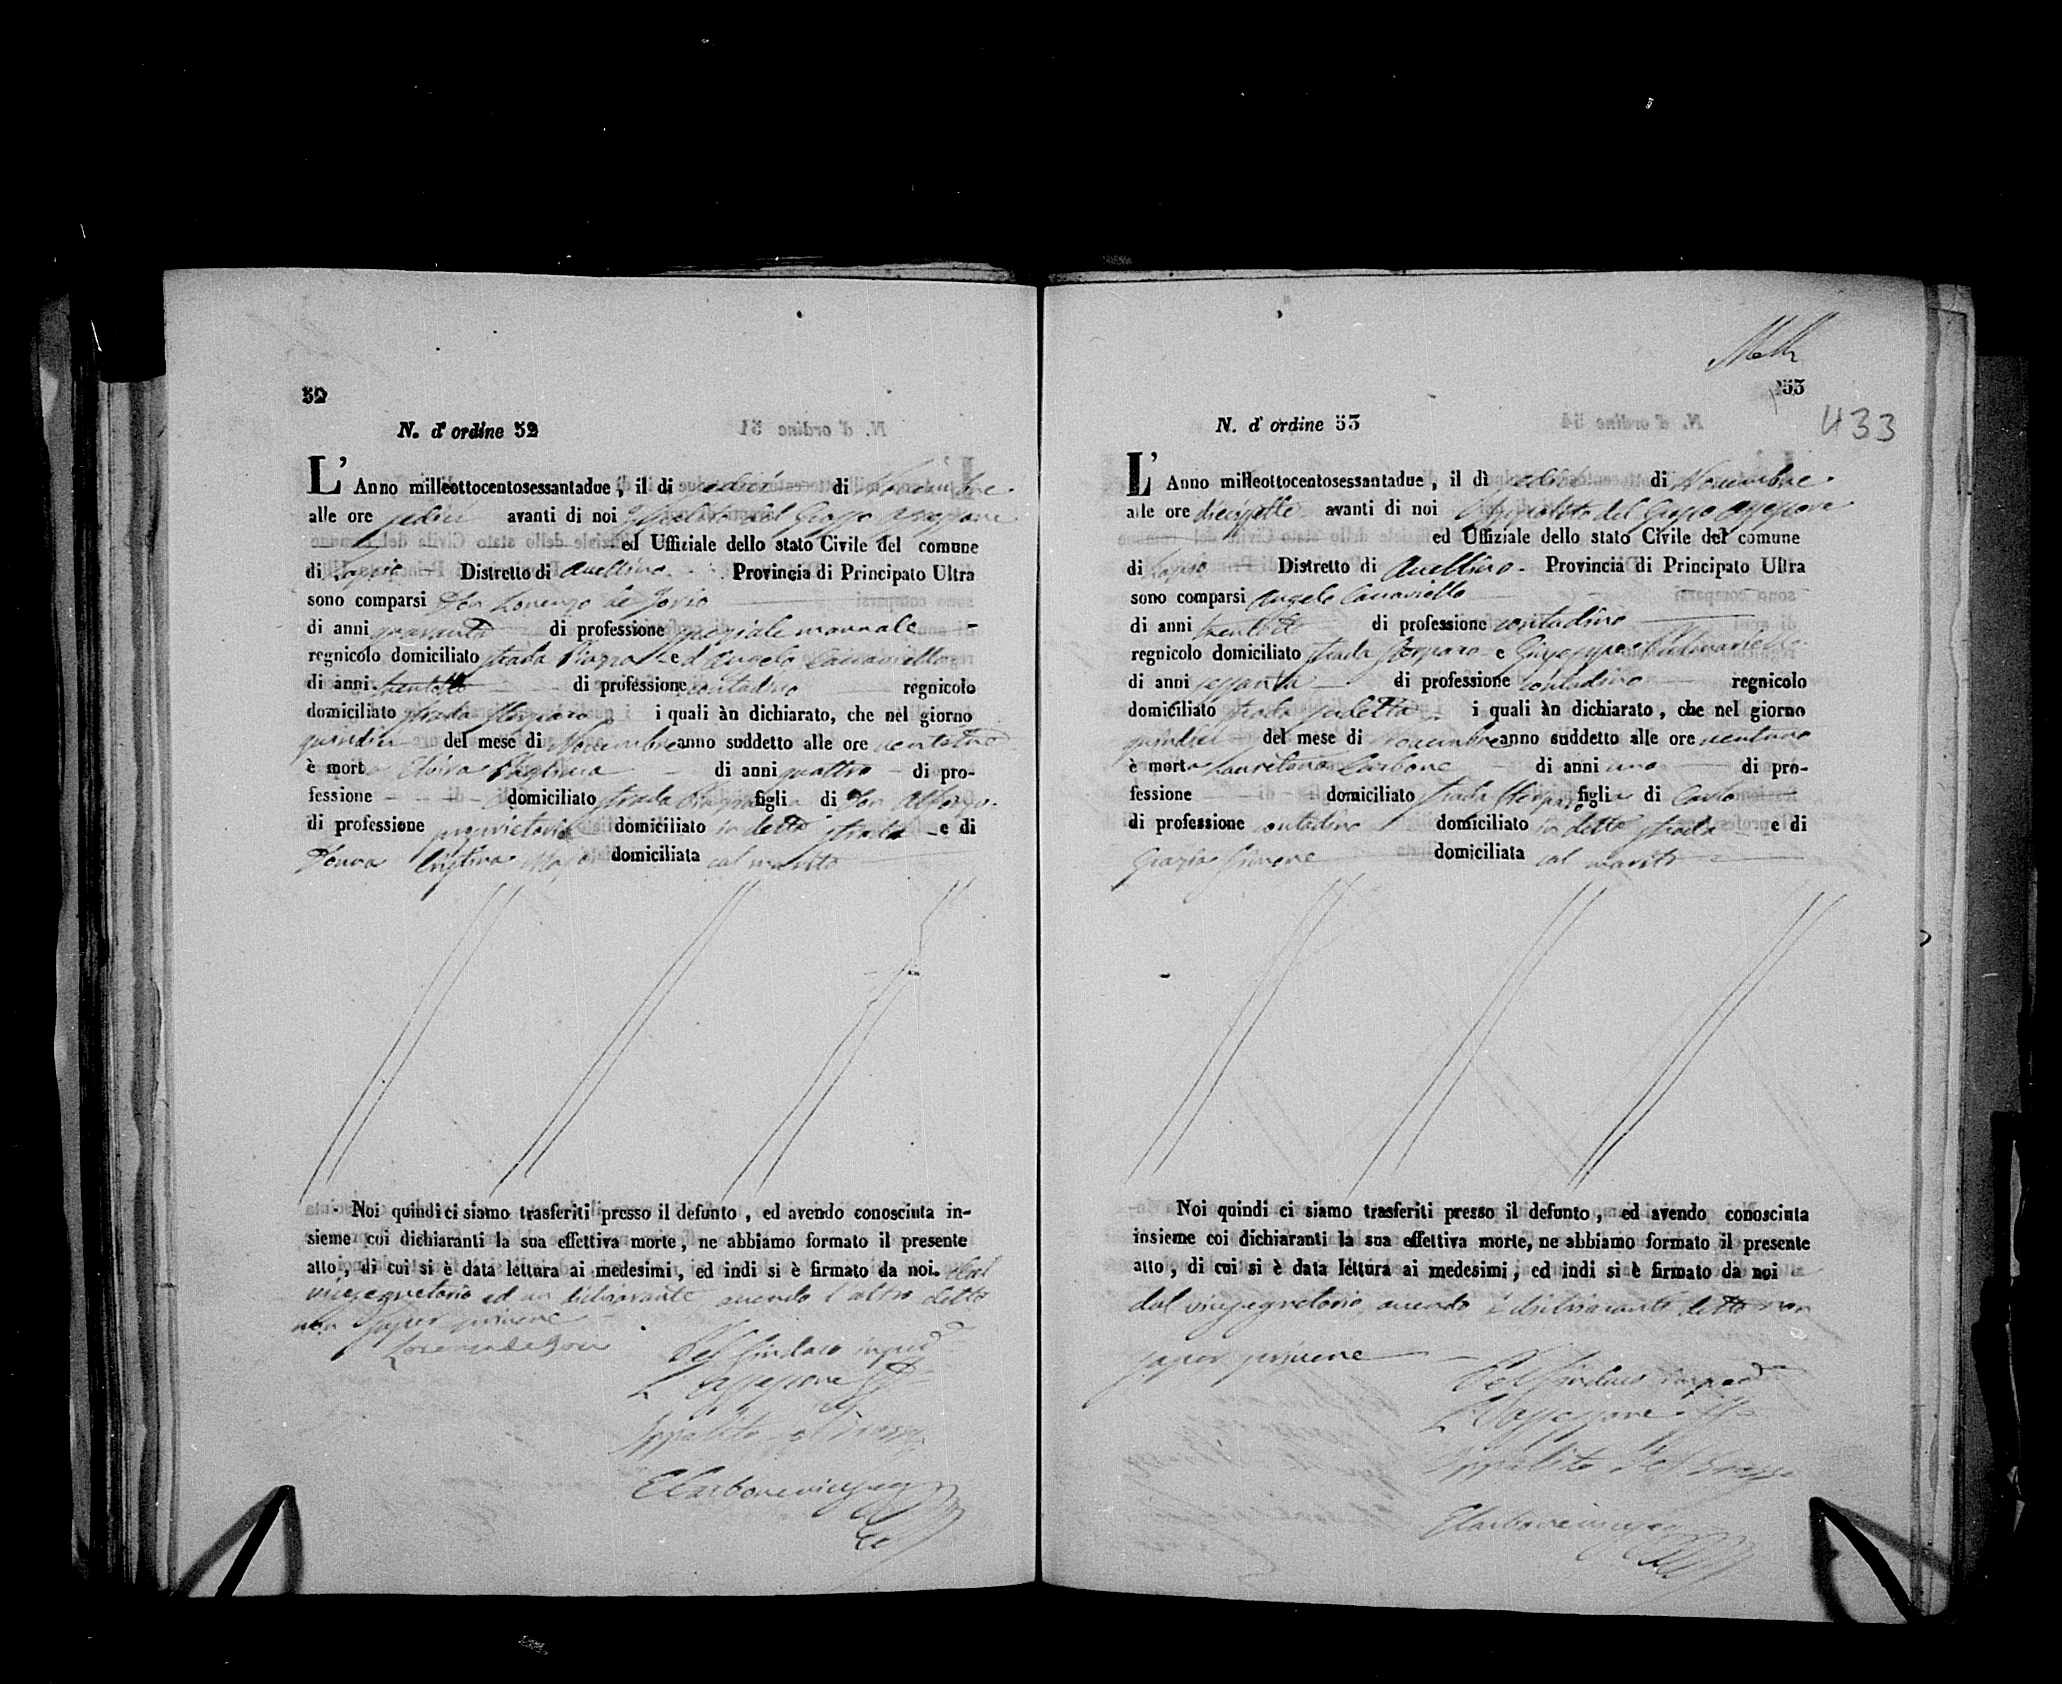 52
N. d' ordine 52
L' Anno milleottocentosessantadue, il di sedici di Novembre
alle ore sedici avanti di noi Ippolito del Grosso assessore
ed Uffiziale dello stato Civile del comune
di Lapio Distretto di Avellino. Provincia di Principato Ultra
sono comparsi Don Lorenzo de Jorio
di anni quaranta di professione speziale manuale
regnicolo domiciliato strada Piazza e d'Angelo Carraviello
di anni trentotto di professione contadino regnicolo
domiciliato strada i quali àn dichiarato, che nel giorno
quindici del mese di Novembre anno suddetto alle ore ventuno
è mort Elvira di anni quattro di pro-
fessione domiciliato strada figli di Don Alfonso
di professione proprietario domiciliato in detta strada e di
Donna Cristina domiciliata col marito
Noi quindi ci siamo trasferiti presso il defunto, ed avendo conosciuta in-
sieme coi dichiaranti la sua effettiva morte, ne abbiamo formato il presente
atto, di cui si è data lettura ai medesimi, ed indi si è firmato da noi. dal
vicesegretario ed un dichiarante avendo l'altro detto
non saper scrivere
Lorenzo de Jorio
Pel Sindaco imped
L'assessore
Ippolito del Grosso
E Carbone viceseg
53
433
N. d' ordine 53
L' Anno milleottocentosessantadue, il dì sedici di Novembre
alle ore diecissette avanti di noi Ippolito del Grosso assessore
ed Uffiziale dello stato Civile del comune
di Lapio Distretto di Avellino. Provincia di Principato Ultra
sono comparsi Angelo Carraviello
di anni trentotto di professione contadino
regnicolo domiciliato strada e Giuseppe
di anni sessanta di professione contadino regnicolo
domiciliato strada i quali àn dichiarato, che nel giorno
quindici del mese di Novembre anno suddetto alle ore ventuno
è morta Lauretana Carbone di anni uno di pro-
fessione domiciliato strada figlia di Carlo
di professione contadino domiciliato in detta strada e di
Grazia domiciliata col marito
Noi quindi ci siamo trasferiti presso il defunto, ed avendo conosciuta
insieme coi dichiaranti la sua effettiva morte, ne abbiamo formato il presente
atto, di cui si è data lettura ai medesimi, ed indi si è firmato da noi
dal vicesegretario avendo i dichiaranti detto non
saper scrivere
Pel Sindaco imped
L'Assessore
Ippolito Del Grosso
E Carbone viceseg